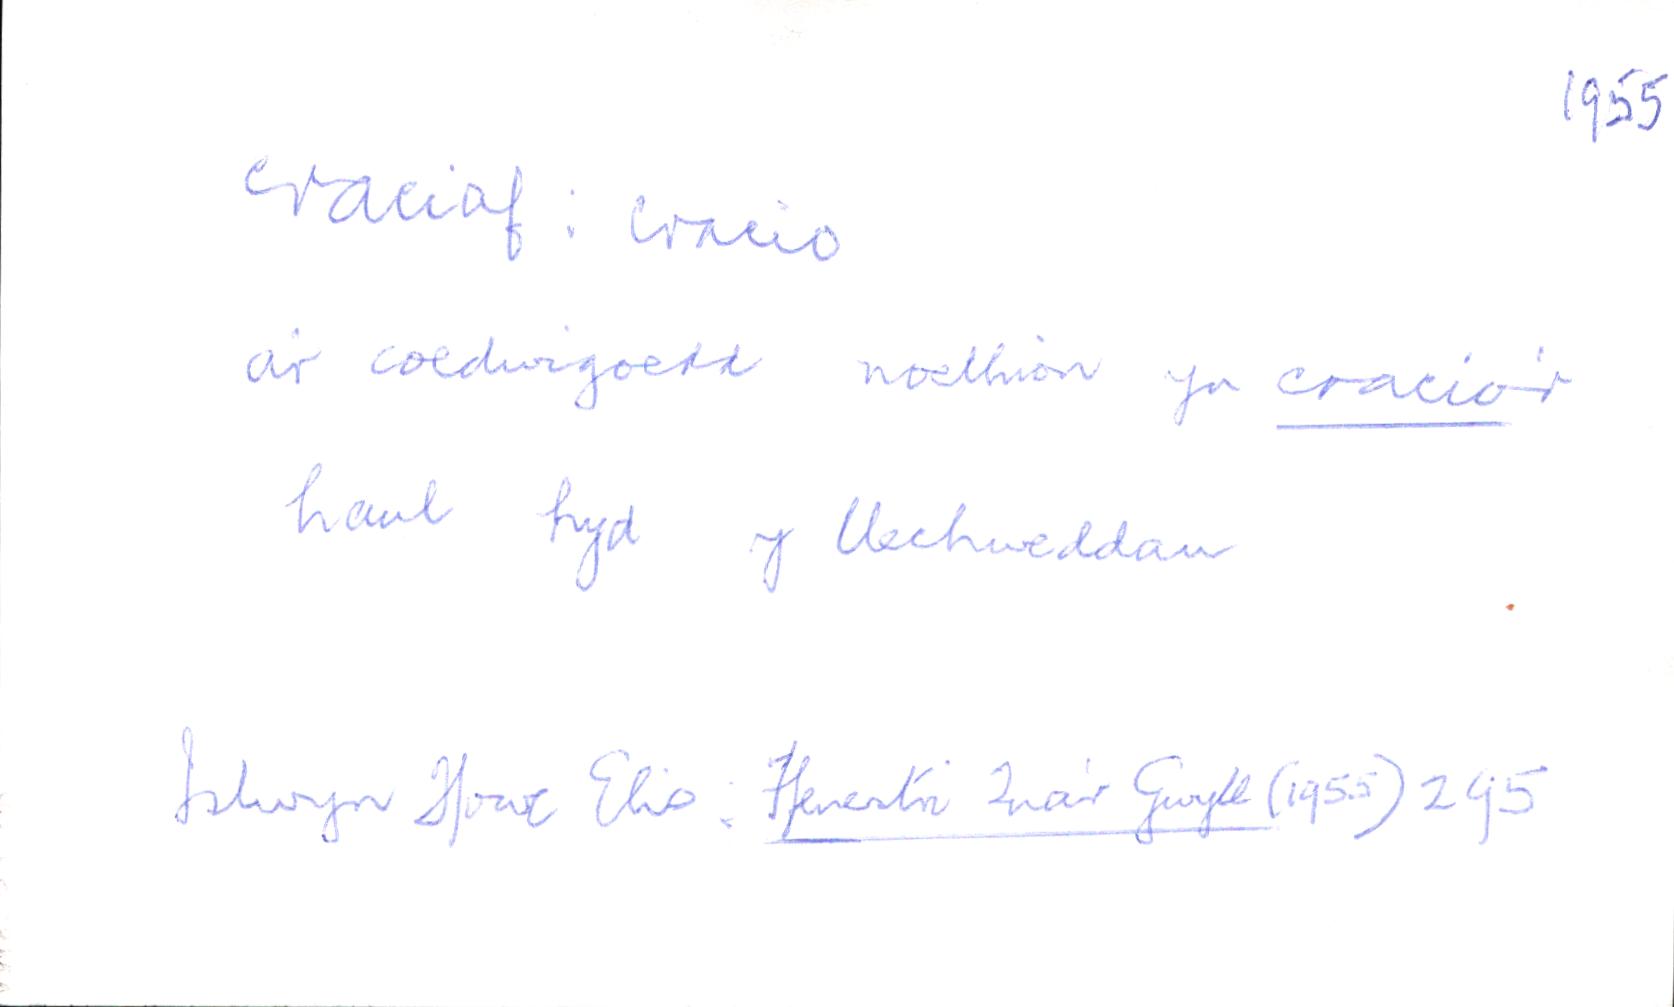 1955
craciaf : cracio
a'r coedwigoedd noethion yn cracio'r
haul hyd y llechweddau
Islwyn Ffowc Elis : Ffenestri Tua'r Gwyll (1955) 295